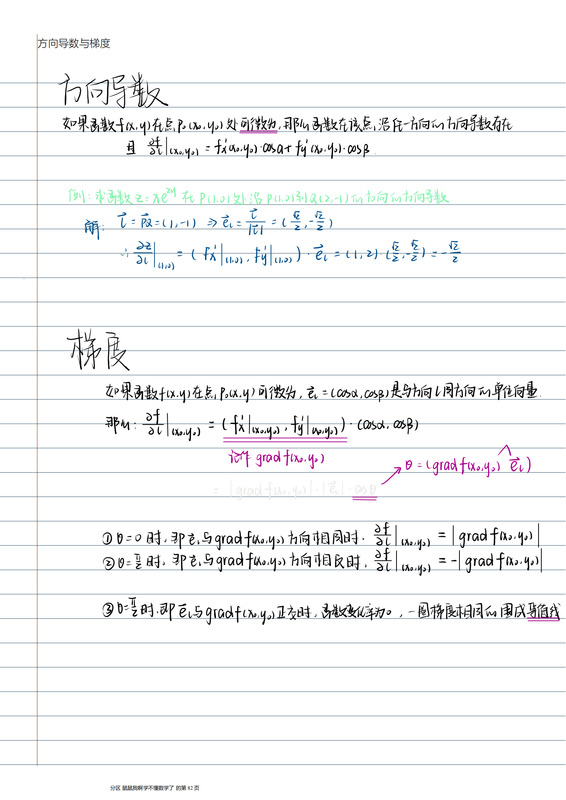 方向导数与梯度
方向导数
如果函数f(x,y)在点P₀(x₀,y₀)处可微分,那么函数在该点沿任一方向的方向导数存在
且 ∂f/∂l|(x₀,y₀) = fx'(x₀,y₀)·cosα + fy'(x₀,y₀)·cosβ
例: 求函数 z=xe^{2y} 在 P(1,0)处沿 P(1,0)到Q(2,-1)的方向的方向导数
解: l⃗ = PQ⃗ = (1,-1) ⇒ e⃗ₗ = l⃗/|l⃗| = (√2/2, -√2/2)
∴ ∂z/∂l|(1,0) = (fx'|(1,0), fy'|(1,0))·e⃗ₗ = (1,2)·(√2/2, -√2/2) = -√2/2
梯度
如果函数f(x,y)在点P₀(x,y)可微分, e⃗ₗ=(cosα,cosβ)是与方向l同方向的单位向量
那么: ∂f/∂l|(x₀,y₀) = (fx'|(x₀,y₀), fy'|(x₀,y₀))·(cosα,cosβ)
记作 grad f(x₀,y₀)
θ=(grad f(x₀,y₀)^e⃗ₗ)
= |grad f(x₀,y₀)|·|e⃗ₗ|·cosθ
①θ=0时,即e⃗ₗ与grad f(x₀,y₀)方向相同时, ∂f/∂l|(x₀,y₀) = |grad f(x₀,y₀)|
②θ=π/2时, 即e⃗ₗ与grad f(x₀,y₀)方向相反时, ∂f/∂l|(x₀,y₀) = -|grad f(x₀,y₀)|
③θ=π/2时,即e⃗ₗ与grad f(x₀,y₀)正交时,函数变化率为0, 一圈梯度相同的围成等值线
分区 鼠鼠我啊学不懂数学了 的第 82 页